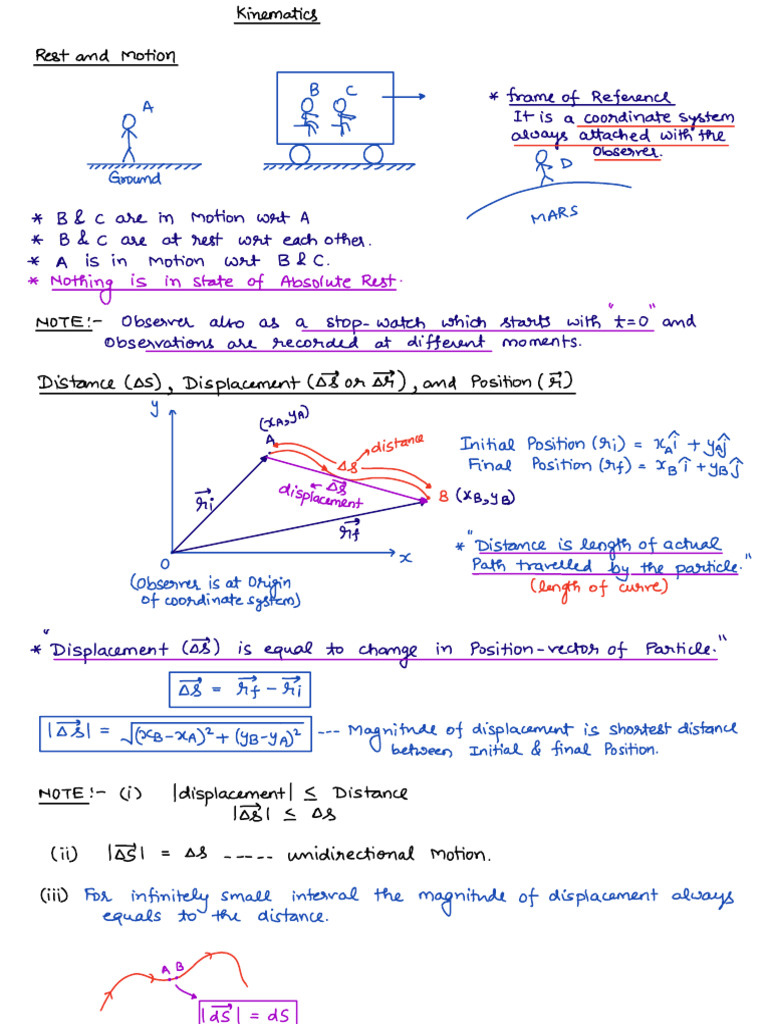 Kinematics
Rest and Motion
A
B C
Ground
* frame of Reference
It is a coordinate system
always attached with the
Observer.
D
MARS
* B & C are in Motion wrt A
* B & C are at rest wrt each other.
* A is in Motion wrt B & C.
* Nothing is in state of Absolute Rest.
NOTE!- Observer also as a stop-watch which starts with "t=0" and
Observations are recorded at different moments.
Distance (Δs), Displacement (Δs⃗ or Δr⃗), and Position (r⃗)
y
(xA, yA)
A
distance
Δs
← Δs⃗
displacement
B (xB, yB)
r⃗i
r⃗f
O
x
(Observer is at Origin
of coordinate system)
Initial Position (ri) = xA î + yA ĵ
Final Position (rf) = xB î + yB ĵ
* "Distance is length of actual
Path travelled by the particle."
(length of curve)
* "Displacement (Δs⃗) is equal to change in Position-vector of Particle."
Δs⃗ = r⃗f - r⃗i
|Δs⃗| = √(xB-xA)² + (yB-yA)² --- Magnitude of displacement is shortest distance
between Initial & final Position.
NOTE!- (i) |displacement| ≤ Distance
|Δs⃗| ≤ Δs
(ii) |Δs⃗| = Δs ----- unidirectional Motion.
(iii) For infinitely small interval the magnitude of displacement always
equals to the distance.
A B
|ds⃗| = ds